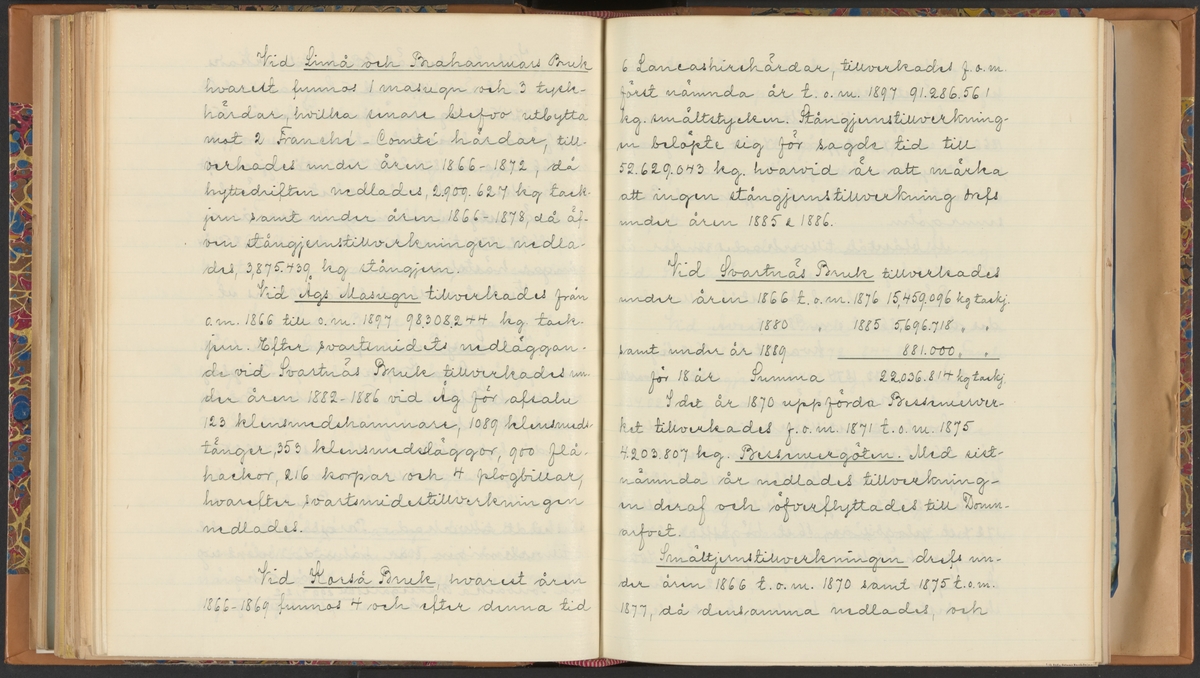 Vid Limå och Brahammars Bruk
hvarest funnos 1 masugn och 3 tysk-
härdar, hvilka senare blefvo utbytta
mot 2 Franché-Comté härdar, till-
verkades under åren 1866-1872, då
hyttedriften nedlades, 2.909.627 kg tack-
jern samt under åren 1866-1878, då äf-
ven stångjernstillverkningen nedla-
des, 3,875.439 kg stångjern.
Vid Ågs Masugn tillverkades från
o.m. 1866 till o.m. 1897 98,308,244 kg. tack-
jern. Efter svartsmidets nedläggan-
de vid Svartnäs Bruk tillverkades un-
der åren 1882-1886 vid Åg för afsalu
123 klensmedshammare, 1089 klensmeds-
tänger, 353 klensmedsläggor, 900 flå-
hackor, 216 korpar och 4 plogbillar,
hvarefter svartsmidestillverkningen
nedlades.
Vid Korså Bruk, hvarest åren
1866-1869 funnos 4 och efter denna tid
6 Lancashirehärdar, tillverkades f.o.m.
först nämnda år t.o.m. 1897 91.286.561
kg. smältstycken. Stångjernstillverkning-
en belöpte sig för sagde tid till
52.629.043 kg. hvarvid är att märka
att ingen stångjernstillverkning drefs
under åren 1885 & 1886.
Vid Svartnäs Bruk tillverkades
under åren 1866 t.o.m. 1876 15,459,096 kg tackj.
1880 " 1885 5,696.718 " "
samt under år 1889 881.000 " "
för 18 år Summa 22,036.814 kg tackj.
I det år 1870 uppförda Bessemerver-
ket tillverkades f.o.m. 1871 t.o.m. 1875
4.203.807 kg. Bessemergöten. Med sist-
nämnda år nedlades tillverkning-
en deraf och öfverflyttades till Domn-
arfvet.
Smältjernstillverkningen drefs un-
der åren 1866 t.o.m. 1870 samt 1875 t.o.m.
1877, då densamma nedlades, och